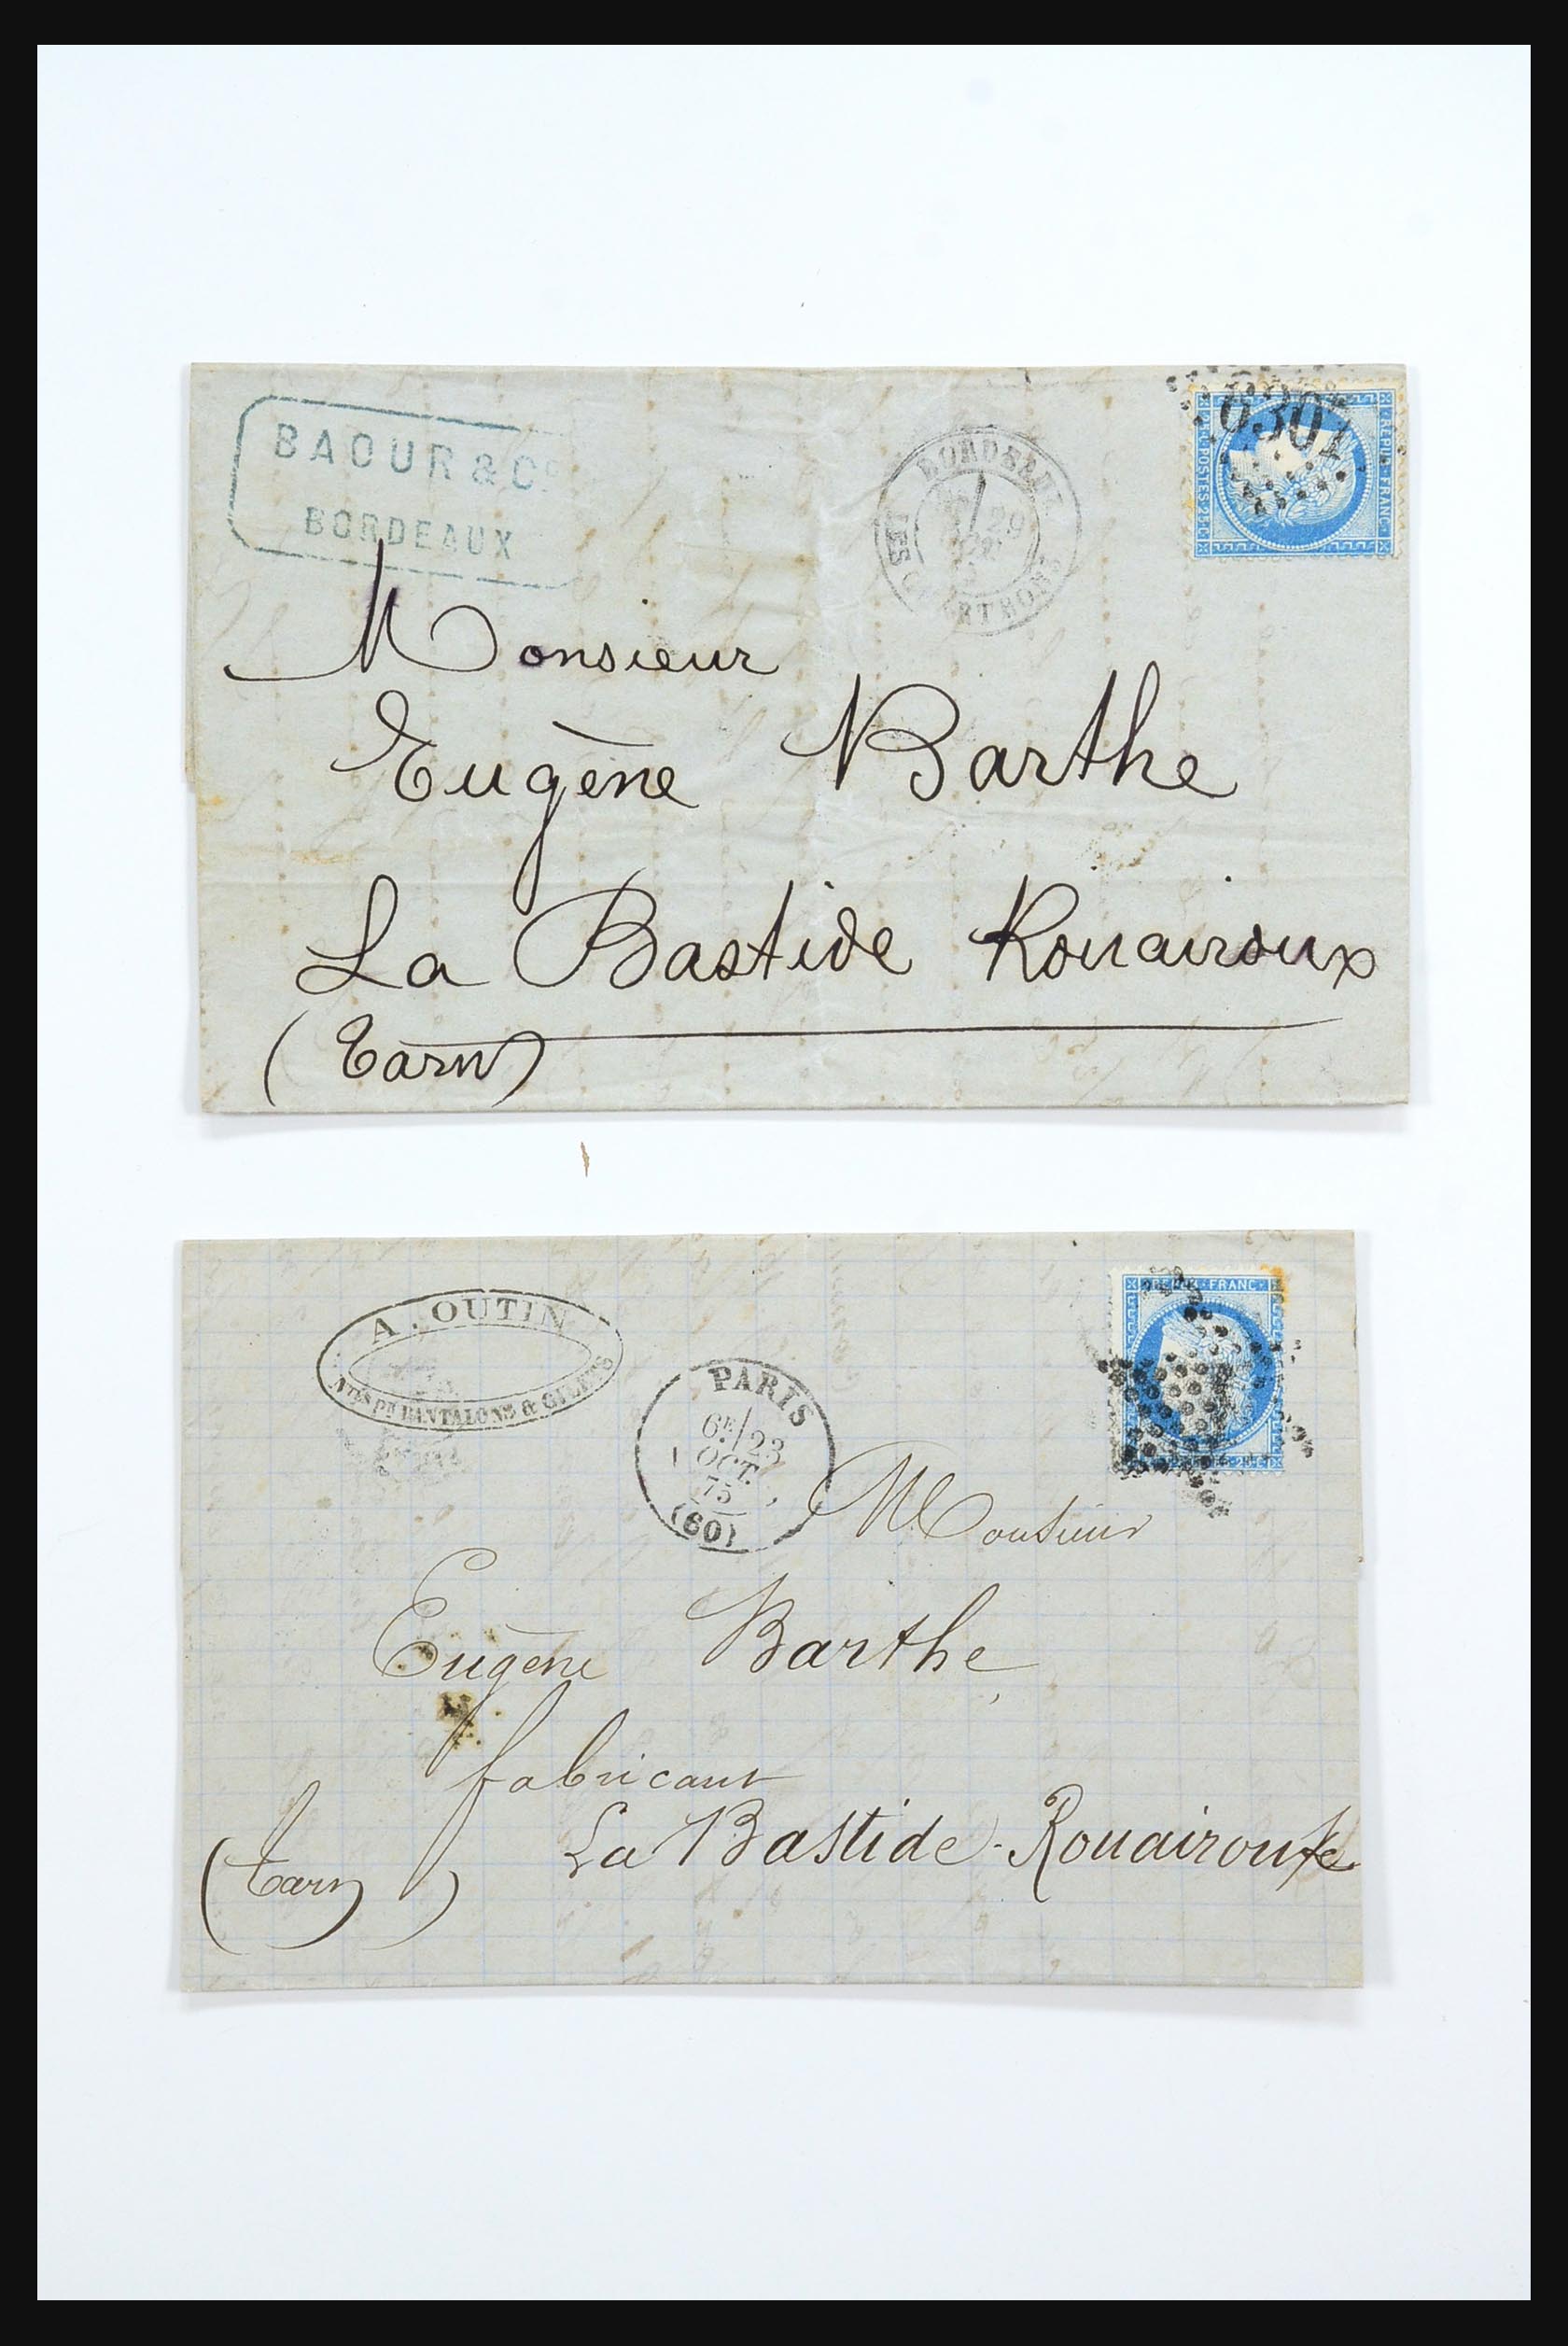 BAOUR & Cº
BORDEAUX
BORDEAUX
29
LES CHARTRONS
6307
REPUB · FRANC
POSTES
Monsieur
Eugène Barthe
La Bastide Rouairoux
(Tarn)
A. OUTIN
Ntés Pr PANTALONS & GILETS
PARIS
6E/23
OCT.
75
(60)
REPUB · FRANC
Monsieur
Eugène Barthe
fabricant
La Bastide-Rouairouxe
(Tarn)